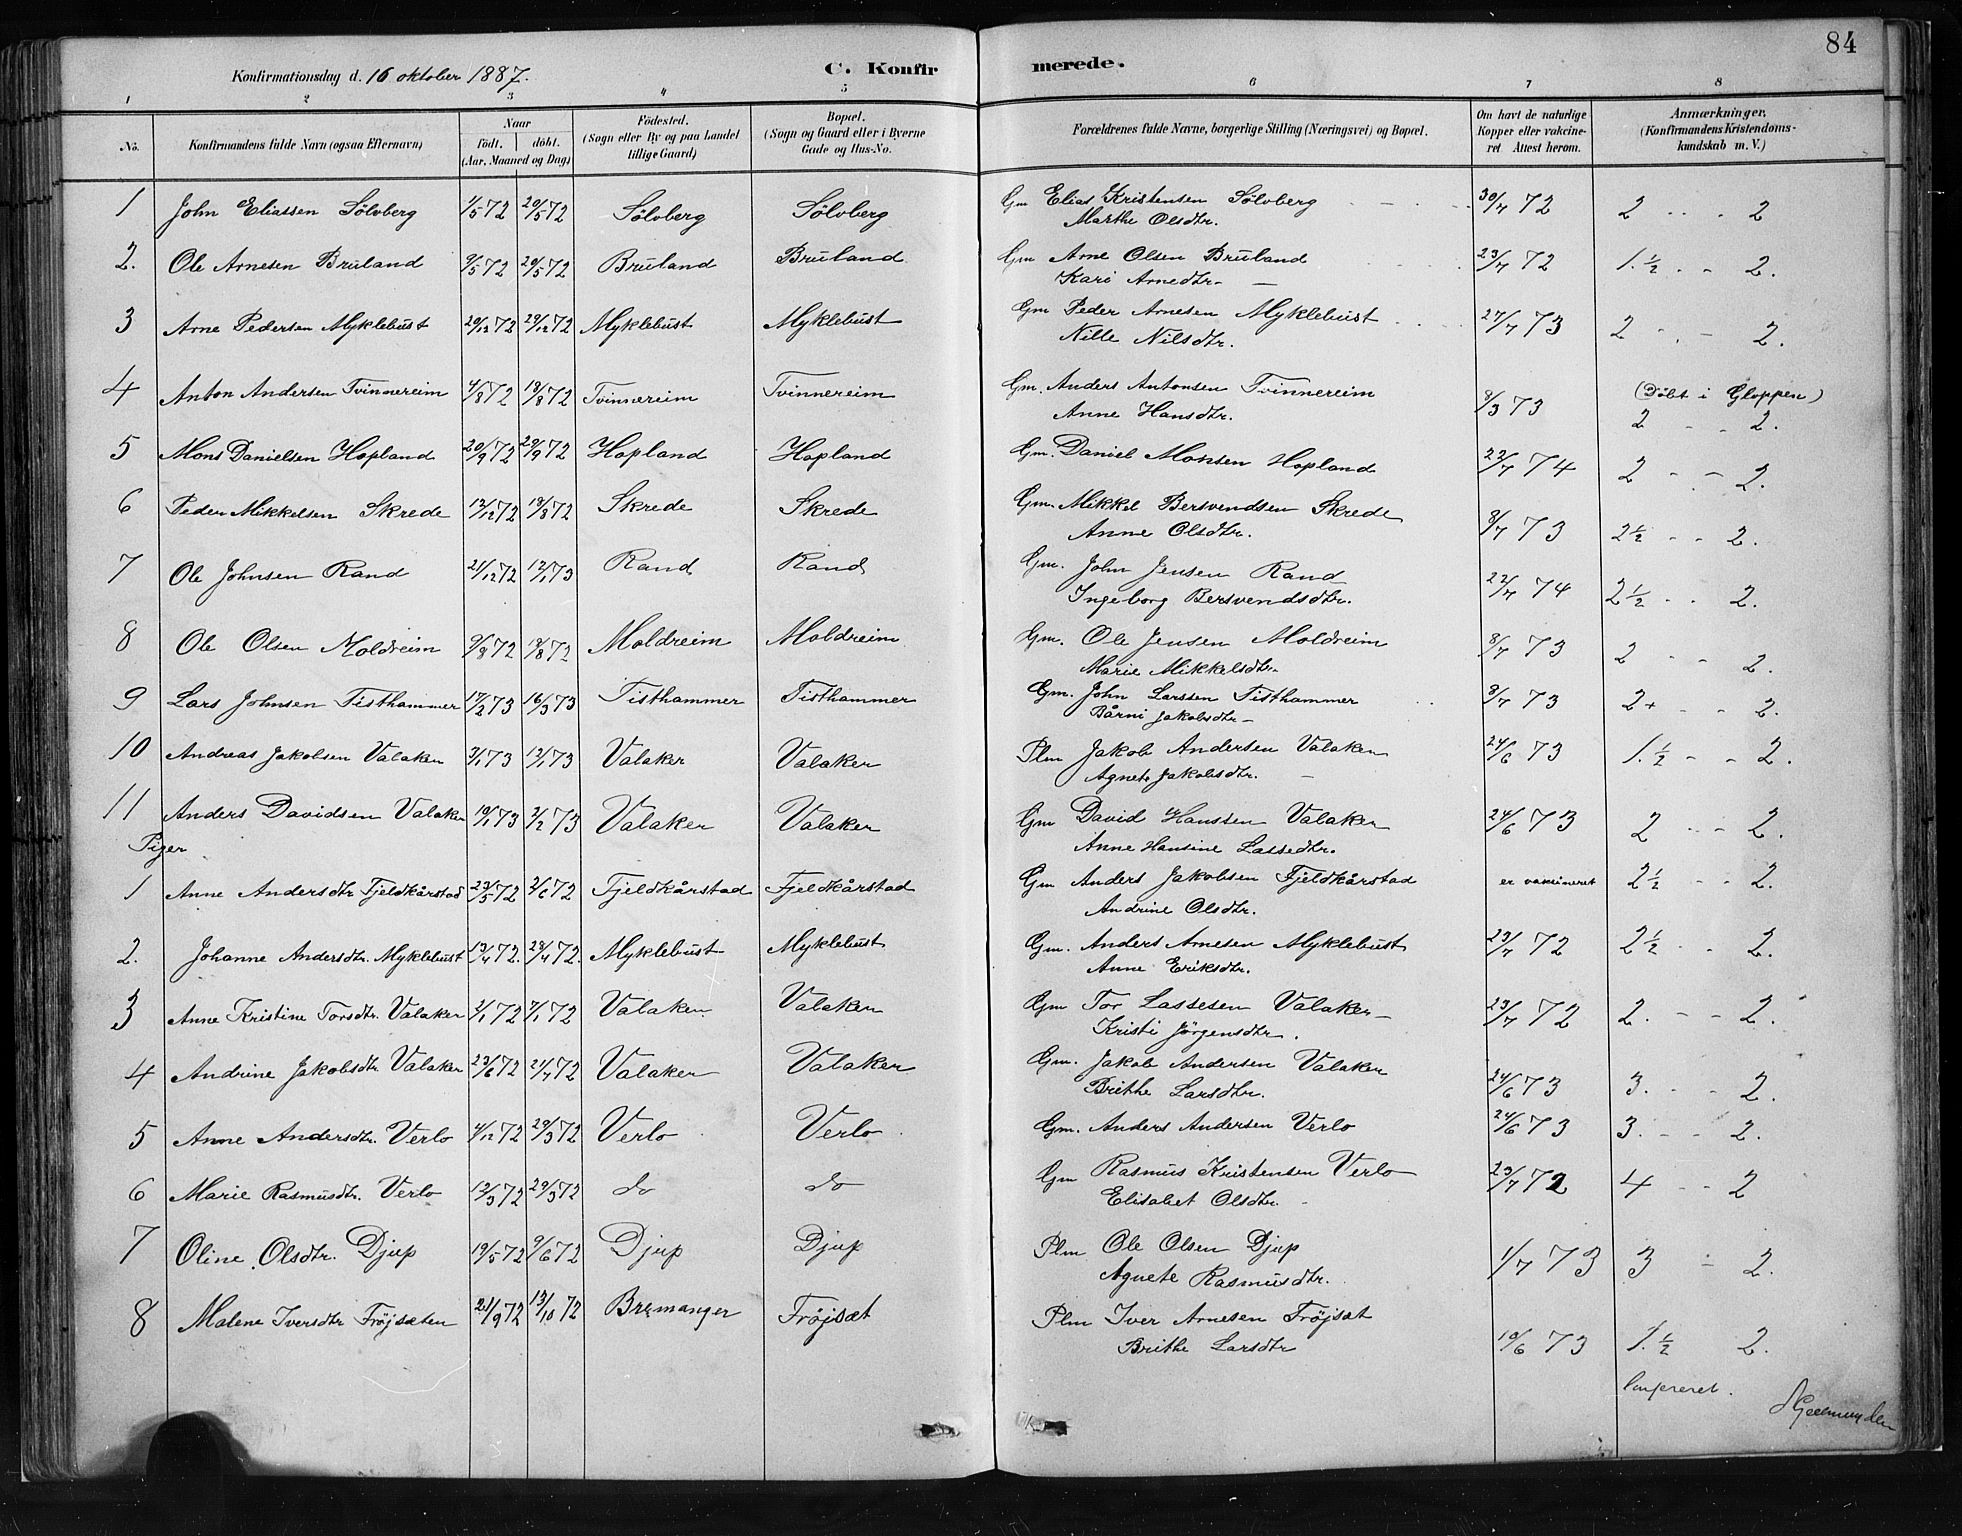 84
Konfirmationsdag d. 16 oktober 1887.
C. Konfirmerede.
1 2 3 4 5 6 7 8
No. | Konfirmandens fulde Navn (ogsaa Efternavn) | Naar födt. döbt. (Aar, Maaned og Dag) | Födested. (Sogn eller By og paa Landet tillige Gaard) | Bopæl. (Sogn og Gaard eller i Byerne Gade og Hus-No. | Forældrenes fulde Navne, borgerlige Stilling (Næringsvei) og Bopæl. | Om havt de naturlige Kopper eller vakcineret Attest herom. | Anmærkninger. (Konfirmandens Kristendomskundskab m. V.)
1 John Eliassen Sölvberg 1/5 72 20/5 72 Sölvberg Sölvberg Gm Elias Kristensen Sölvberg 30/7 72 2 - - 2
Marthe Olsdtr.
2. Ole Arnesen Bruland 9/5 72 20/5 72 Bruland Bruland Gm Arne Olsen Bruland 23/7 72 1.½ - - 2.
Kari Arnedtr. —
3 Arne Pedersen Myklebust 20/12 72 29/12 72 Myklebust Myklebust Gm Peder Arnesen Myklebust 27/7 73 2 - - 2.
Nille Nilsdtr.
4 Anton Andersen Tvinnereim 4/8 72 18/8 72 Tvinnereim Tvinnereim Gm. Anders Antonsen Tvinnereim 8/3 73 (Döbt i Gloppen)
Anne Hansdtr. 2 - - 2.
5 Mons Danielsen Hopland 20/9 72 29/9 72 Hopland Hopland Gm. Daniel Monsen Hopland 22/7 74 2 - - 2.
6 Peder Mikkelsen Skrede 12/12 72 Skrede Skrede Gm. Mikkel Bersvendsen Skrede 8/7 73 2½ - - 2.
Anne Olsdtr.
7 Ole Johnsen Rand 21/12 72 12/1 73 Rand Rand Gm. John Jensen Rand 22/7 74 2½ - - 2.
Ingeborg Bersvendsdtr.
8 Ole Olsen Moldreim 9/8 72 18/8 72 Moldreim Moldreim Gm. Ole Jensen Moldreim 8/7 73 2 - - 2.
Marie Mikkelsdtr.
9 Lars Johnsen Tisthammer 17/2 73 16/3 73 Tisthammer Tisthammer Gm. John Larssen Tisthammer 8/7 73 2+ - - 2.
Bårni Jakobsdtr —
10 Andreas Jakobsen Valaker 3/1 73 12/1 73 Valaker Valaker Plm Jakob Andersen Valaker 24/6 73 1.½ - - 2.
Agnete Jakobsdtr. —
11 Anders Davidsen Valaker 10/1 73 2/2 73 Valaker Valaker Gm David Hanssen Valaker 24/6 73 2 - - 2.
Anne Hansine Lassedtr.
Piger
1 Anne Andersdtr Fjeldkårstad 23/5 72 2/6 72 Fjeldkårstad Fjeldkårstad Gm Anders Jakobsen Fjeldkårstad er vaccineret 2½ - - 2.
Andrine Olsdtr.
2. Johanne Andersdtr. Myklebust 13/4 72. 28/4 72. Myklebust Myklebust Gm. Anders Arnesen Myklebust 23/7 72 2½ - - 2.
Anne Eriksdtr.
3 Anne Kristine Torsdtr. Valaker 1/1 72 7/1 72 Valaker Valaker Gm Tor Lassesen Valaker — 23/7 72 2. - - 2.
Kristi Jörgensdtr.
4 Andrine Jakobsdtr Valaker 23/6 72 21/7 72 Valaker Valaker Gm. Jakob Andersen Valaker 24/6 73 3. - - 2.
Brithe Larsdtr.
5 Anne Andersdtr. Verlo 4/12 72 29/3 72 Verlo Verlo Gm. Anders Andersen Verlo 24/6 73 3. - - 2.
6 Marie Rasmusdtr. Verlo 12/3 72 29/3 72 do do Gm Rasmus Kristensen Verlo 23/7 72 4 - - 2
Elisabet Olsdtr. —
7 Oline Olsdtr. Djup 19/5 72 9/6 72 Djup Djup Plm Ole Olsen Djup 1/7 73 3 - 2.
Agnete Rasmusdtr.
8 Malene Iversdtr Fröjsæten 21/9 72 13/10 72 Bremanger Fröjsæt Plm Iver Arnesen Fröjsæt 10/6 73 1.½ 2.
Brithe Larsdtr